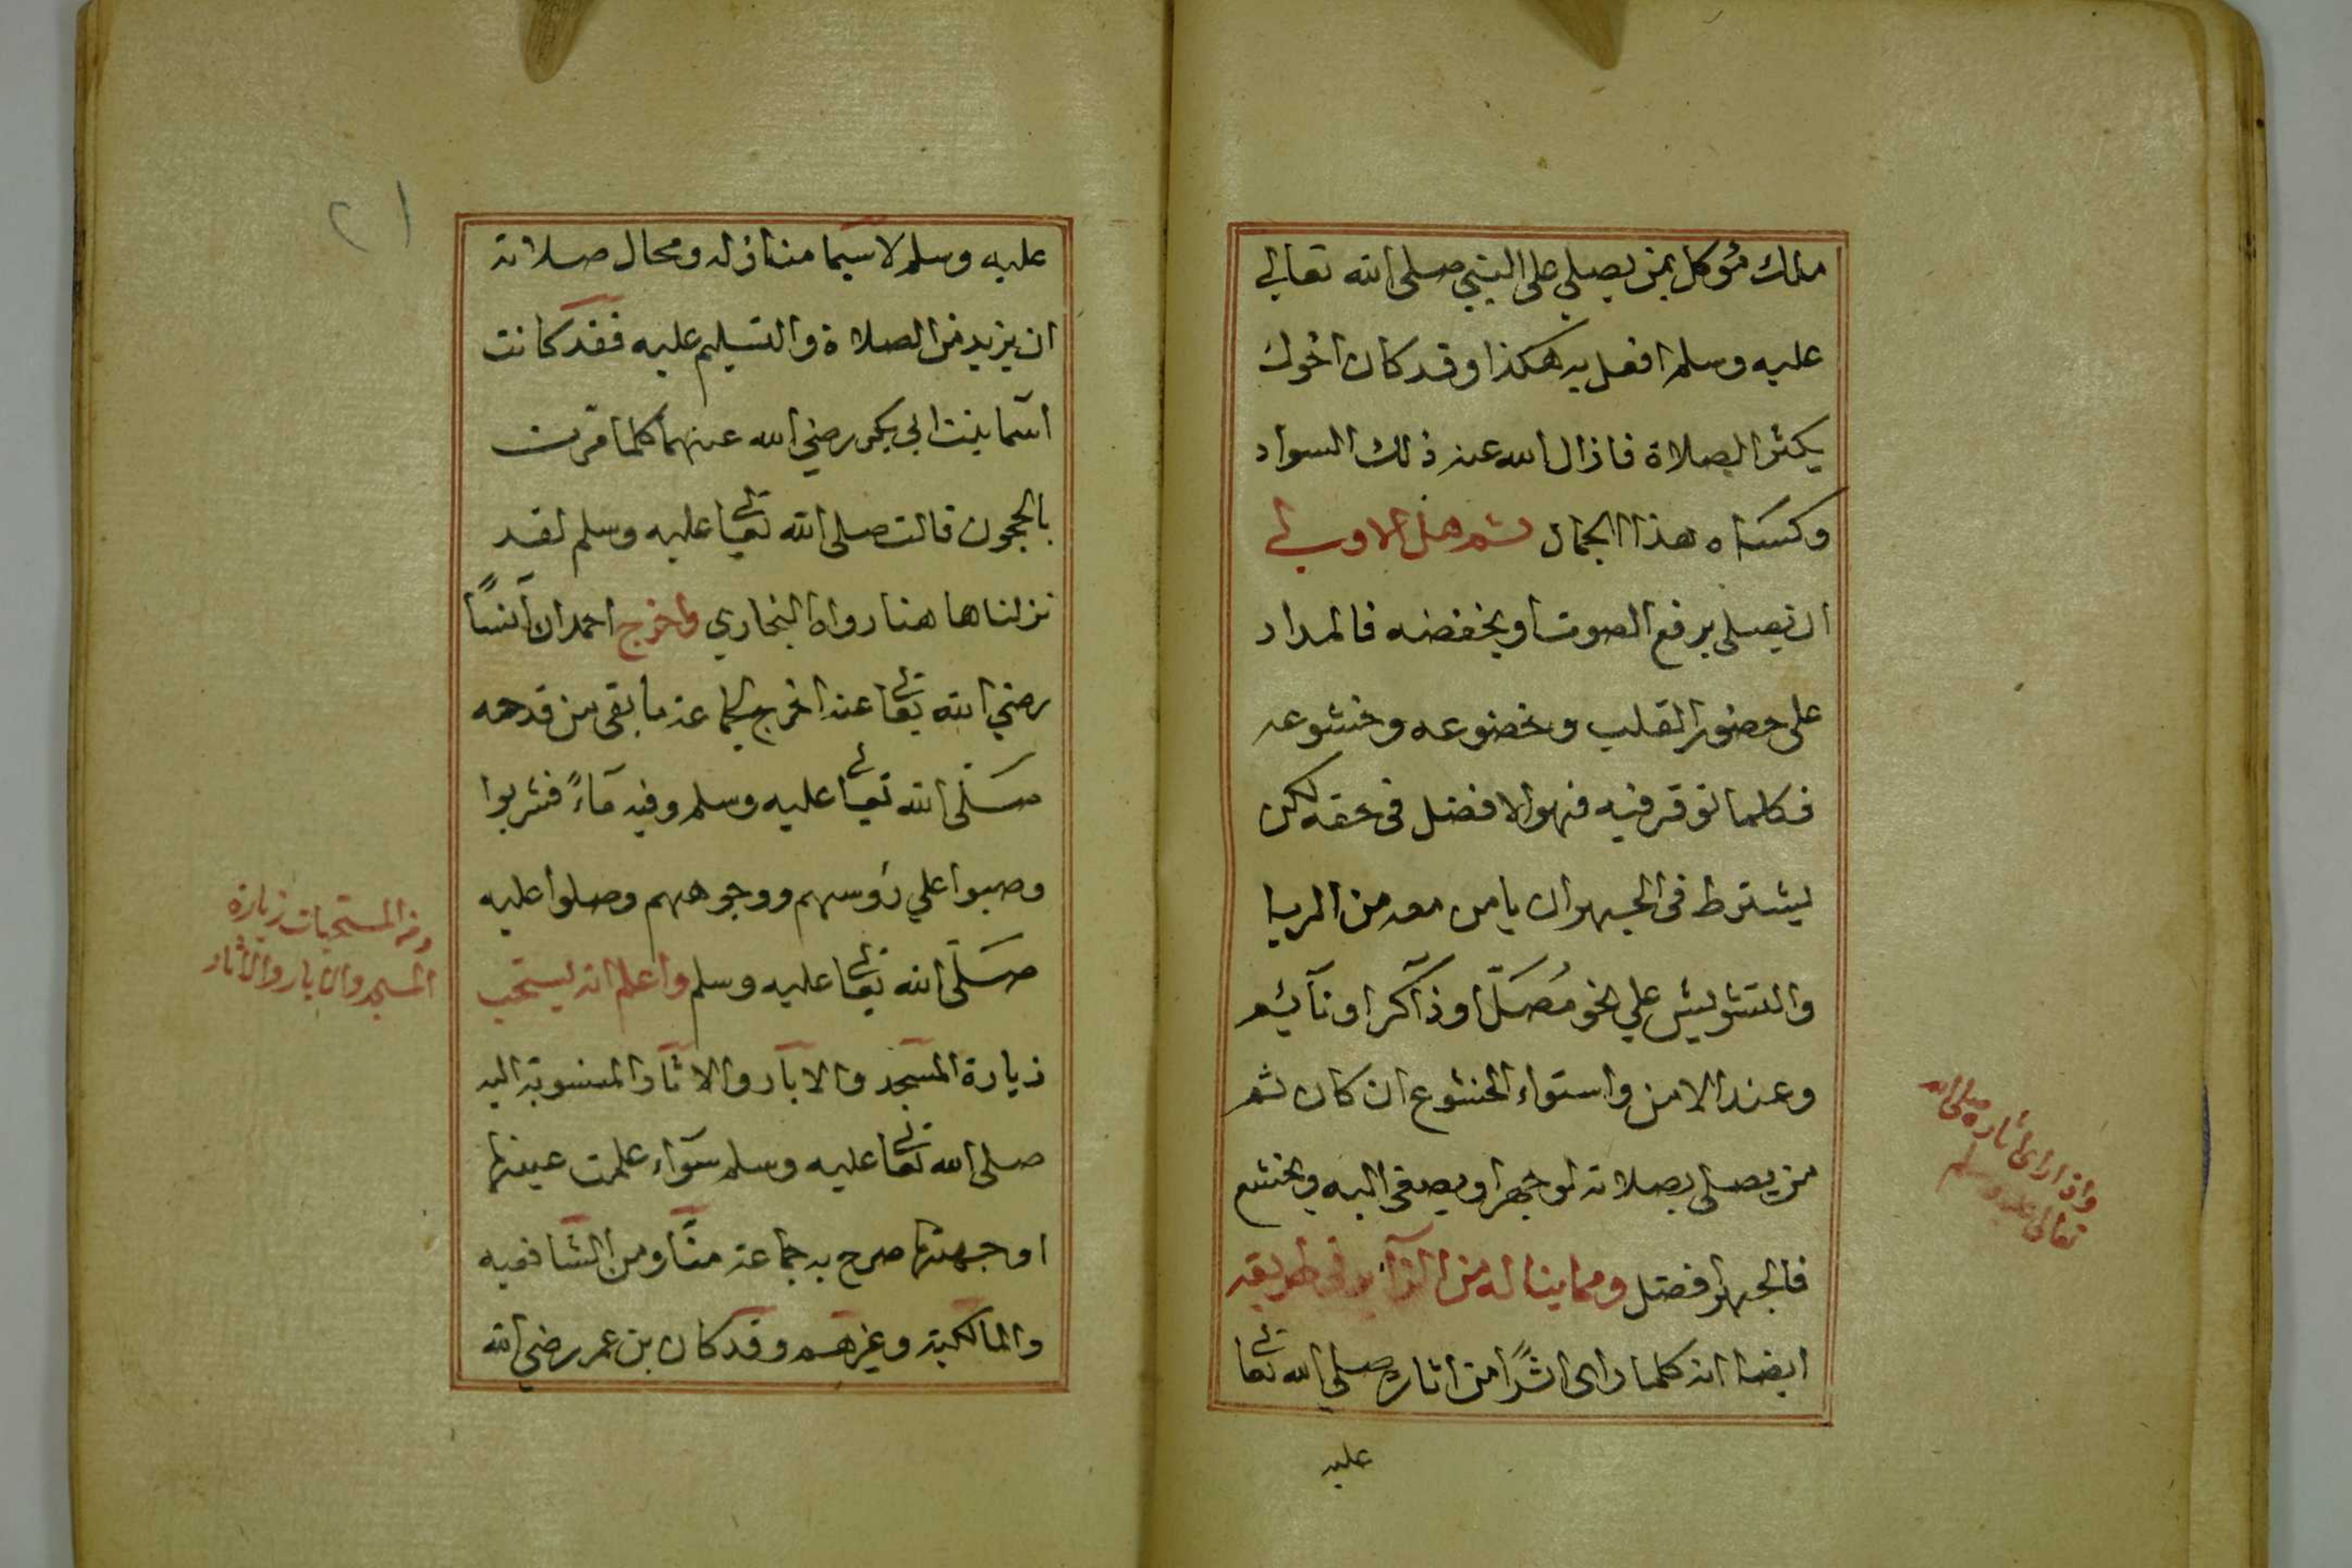 ملك مؤكل بمن يصلي على النبي صلى الله تعالى
عليه وسلم افعل به هكذا وقد كان اخوك
يكثر الصلاة فازال الله عنه ذلك السواد
وكساه هذا الجمال ثم هل الاولى
ان يصلي برفع الصوت او يخفضه فالمدار
على حضور القلب وخضوعه وخشوعه
فكلما توقر فيه فهو الافضل في حقه لكن
يشترط في الجهر ان يامن معه من الريا
والتشويش علي نحو مُصَلّ او ذاكر او نآئم
وعند الامن واستواء الخشوع ان كان ثم
من يصلي بصلاته لو جهر او يصغي اليه ويخشع
فالجهر افضل ومما يناله من الزآير في طريقه
ايضا انه كلما راى اثرًا من اثاره صلي الله تعا
عليه
واذا راى اثاره صلى الله
تعالى عليه وسلم
٢١
عليه وسلم لا سيما منازله ومحال صلاته
ان يزيد من الصلاة والتسليم عليه فقد كانت
اسما بنت ابي بكر رضي الله عنهما كلما مرت
بالحجون قالت صلى الله تعا عليه وسلم لقد
نزلنا ها هنا رواه البخاري واخرج احمد ان انسًا
رضي الله تعا عنه اخرج لجماعة ما بقى من قدحه
صَلّى الله تعا عليه وسلم وفيه مآءً فشربوا
وصبوا علي رؤسهم ووجوههم وصلوا عليه
صَلّى الله تعا عليه وسلم واعلم انه يستحب
زيارة المسجد والابار والاثار المنسوبة اليه
صلى الله تعا عليه وسلم سوآء علمت عينها
او جهتها صرح به جماعة منّا ومن الشافعيه
والمالكية وغيرهم وقد كان بن عمر رضي الله
ومن المستحبات زيارة
المسجد والابار والاثار